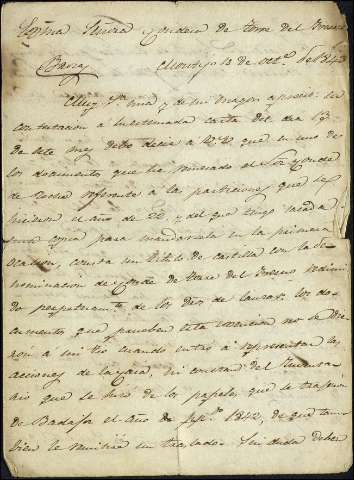 Exma Señora Condesa de Torre del Fresno
Montijo 18 de Octe. de 1843
Muy Sra. mia y de mi mayor aprecio: en
contestacion à la estimada carta del dia 13
de este mes debo decir a V.E. que en uno de
los documentos que ha remesado el Sor. Conde
de referente à las particiones que se
hicieron el año de 22, y del que tengo
una copia para mandarsela en la primera
ocasion, consta un titulo de Castilla con la de
nominacion de Conde de Torre del Fresno redimi
do perpetuamte. de los dros de lanzas: los do
cumentos que prueben esta no se die
ron a mi tio cuando entró à representar las
acciones de la Casa, ni constan del Ynventa
rio que se hizo de los papeles que se trageron
de Badajoz el año de 1842, de que tam
bien le remitiré un traslado. Sin duda deben